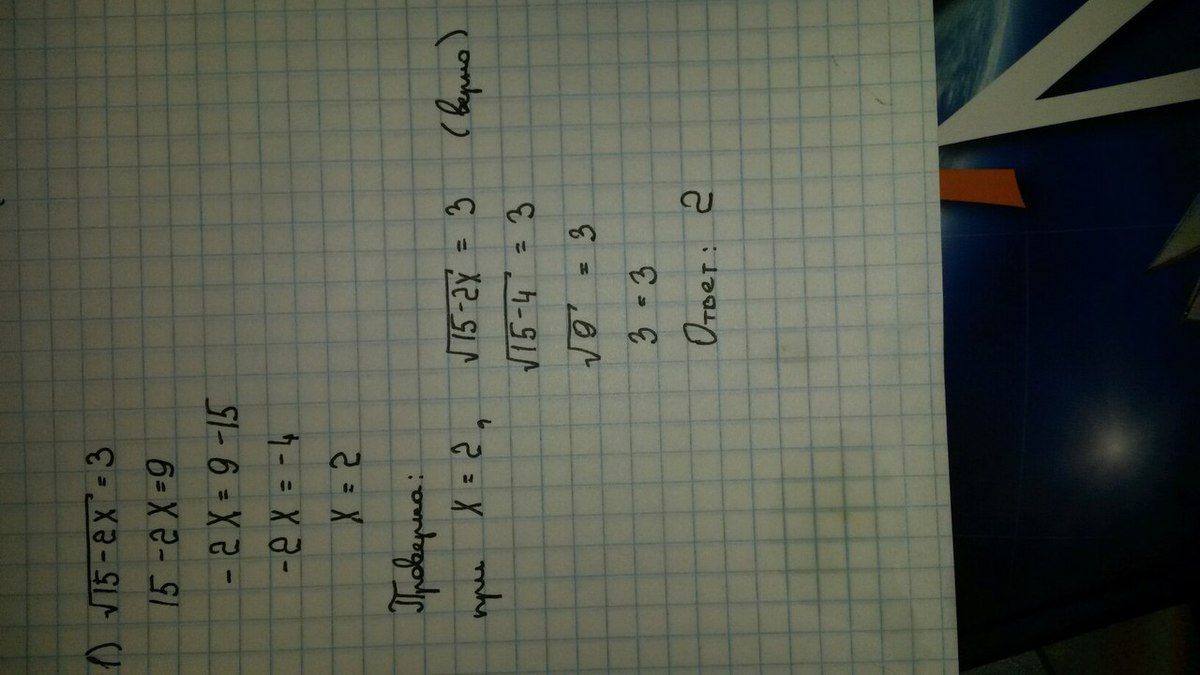 1) √15-2X = 3
15 - 2X = 9
-2X = 9 - 15
-2X = -4
X = 2
Проверка:
при X = 2, √15-2X = 3 (верно)
√15-4 = 3
√9 = 3
3 = 3
Ответ: 2